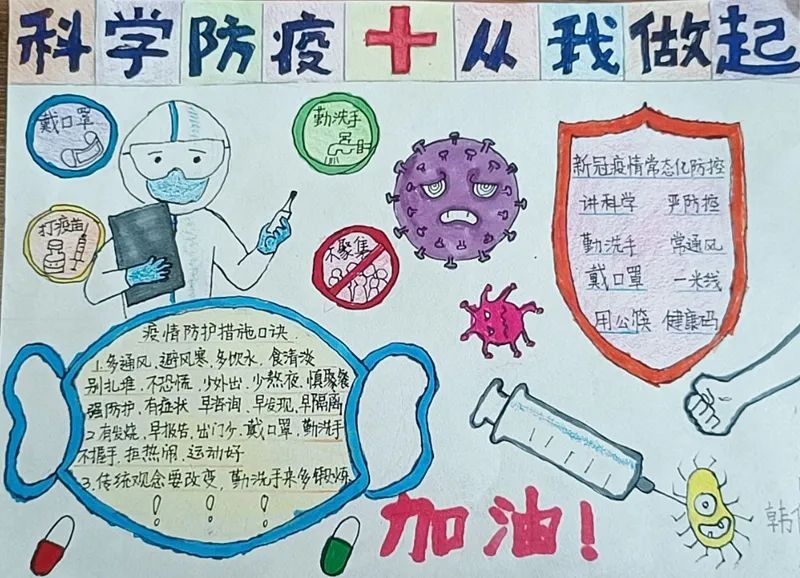 科学防疫 从我做起
戴口罩
勤洗手
打疫苗
不聚集
新冠疫情常态化防控
讲科学 严防控
勤洗手 常通风
戴口罩 一米线
用公筷 健康码
疫情防护措施口诀
1.多通风、避风寒、多饮水、食清淡
别扎堆、不恐慌、少外出、少熬夜、慎聚餐
强防护、有症状、早咨询、早发现、早隔离
2.有发烧、早报告、出门少、戴口罩、勤洗手
不握手、拒热闹、运动好
3.传统观念要改变，勤洗手来多锻炼
! ! !
加油!
韩